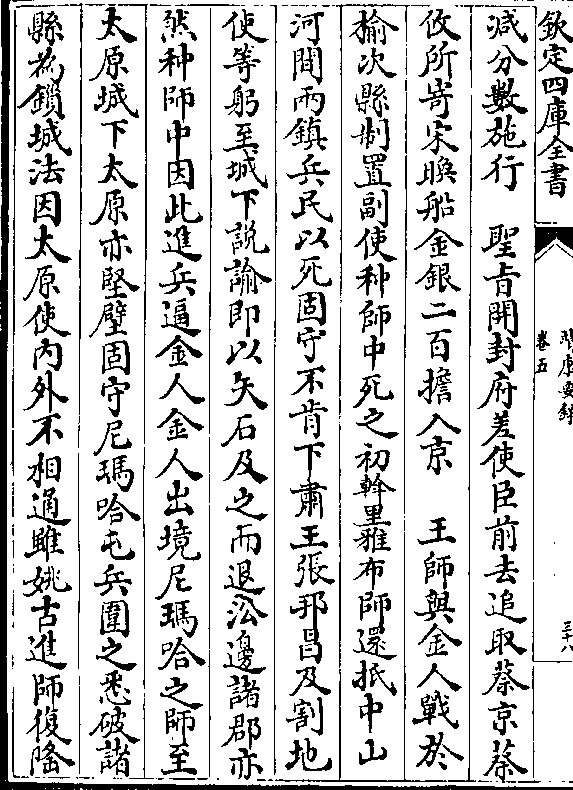 欽定四庫全書
靖康要錄
卷五
三十八
減分數施行　聖旨開封府差使臣前去追取蔡京蔡
攸所寄宋㬇船金銀二百擔入京　王師與金人戰於
榆次縣制置副使种師中死之初斡里雅布師還抵中山
河間兩鎮兵民以死固守不肯下肅王張邦昌及割地
使等躬至城下說諭即以矢石及之而退㳂邊諸郡亦
然种師中因此進兵逼金人金人出境尼瑪哈之師至
太原城下太原亦堅壁固守尼瑪哈屯兵圍之悉破諸
縣為鎖城法困太原使內外不相通雖姚古進師復隆